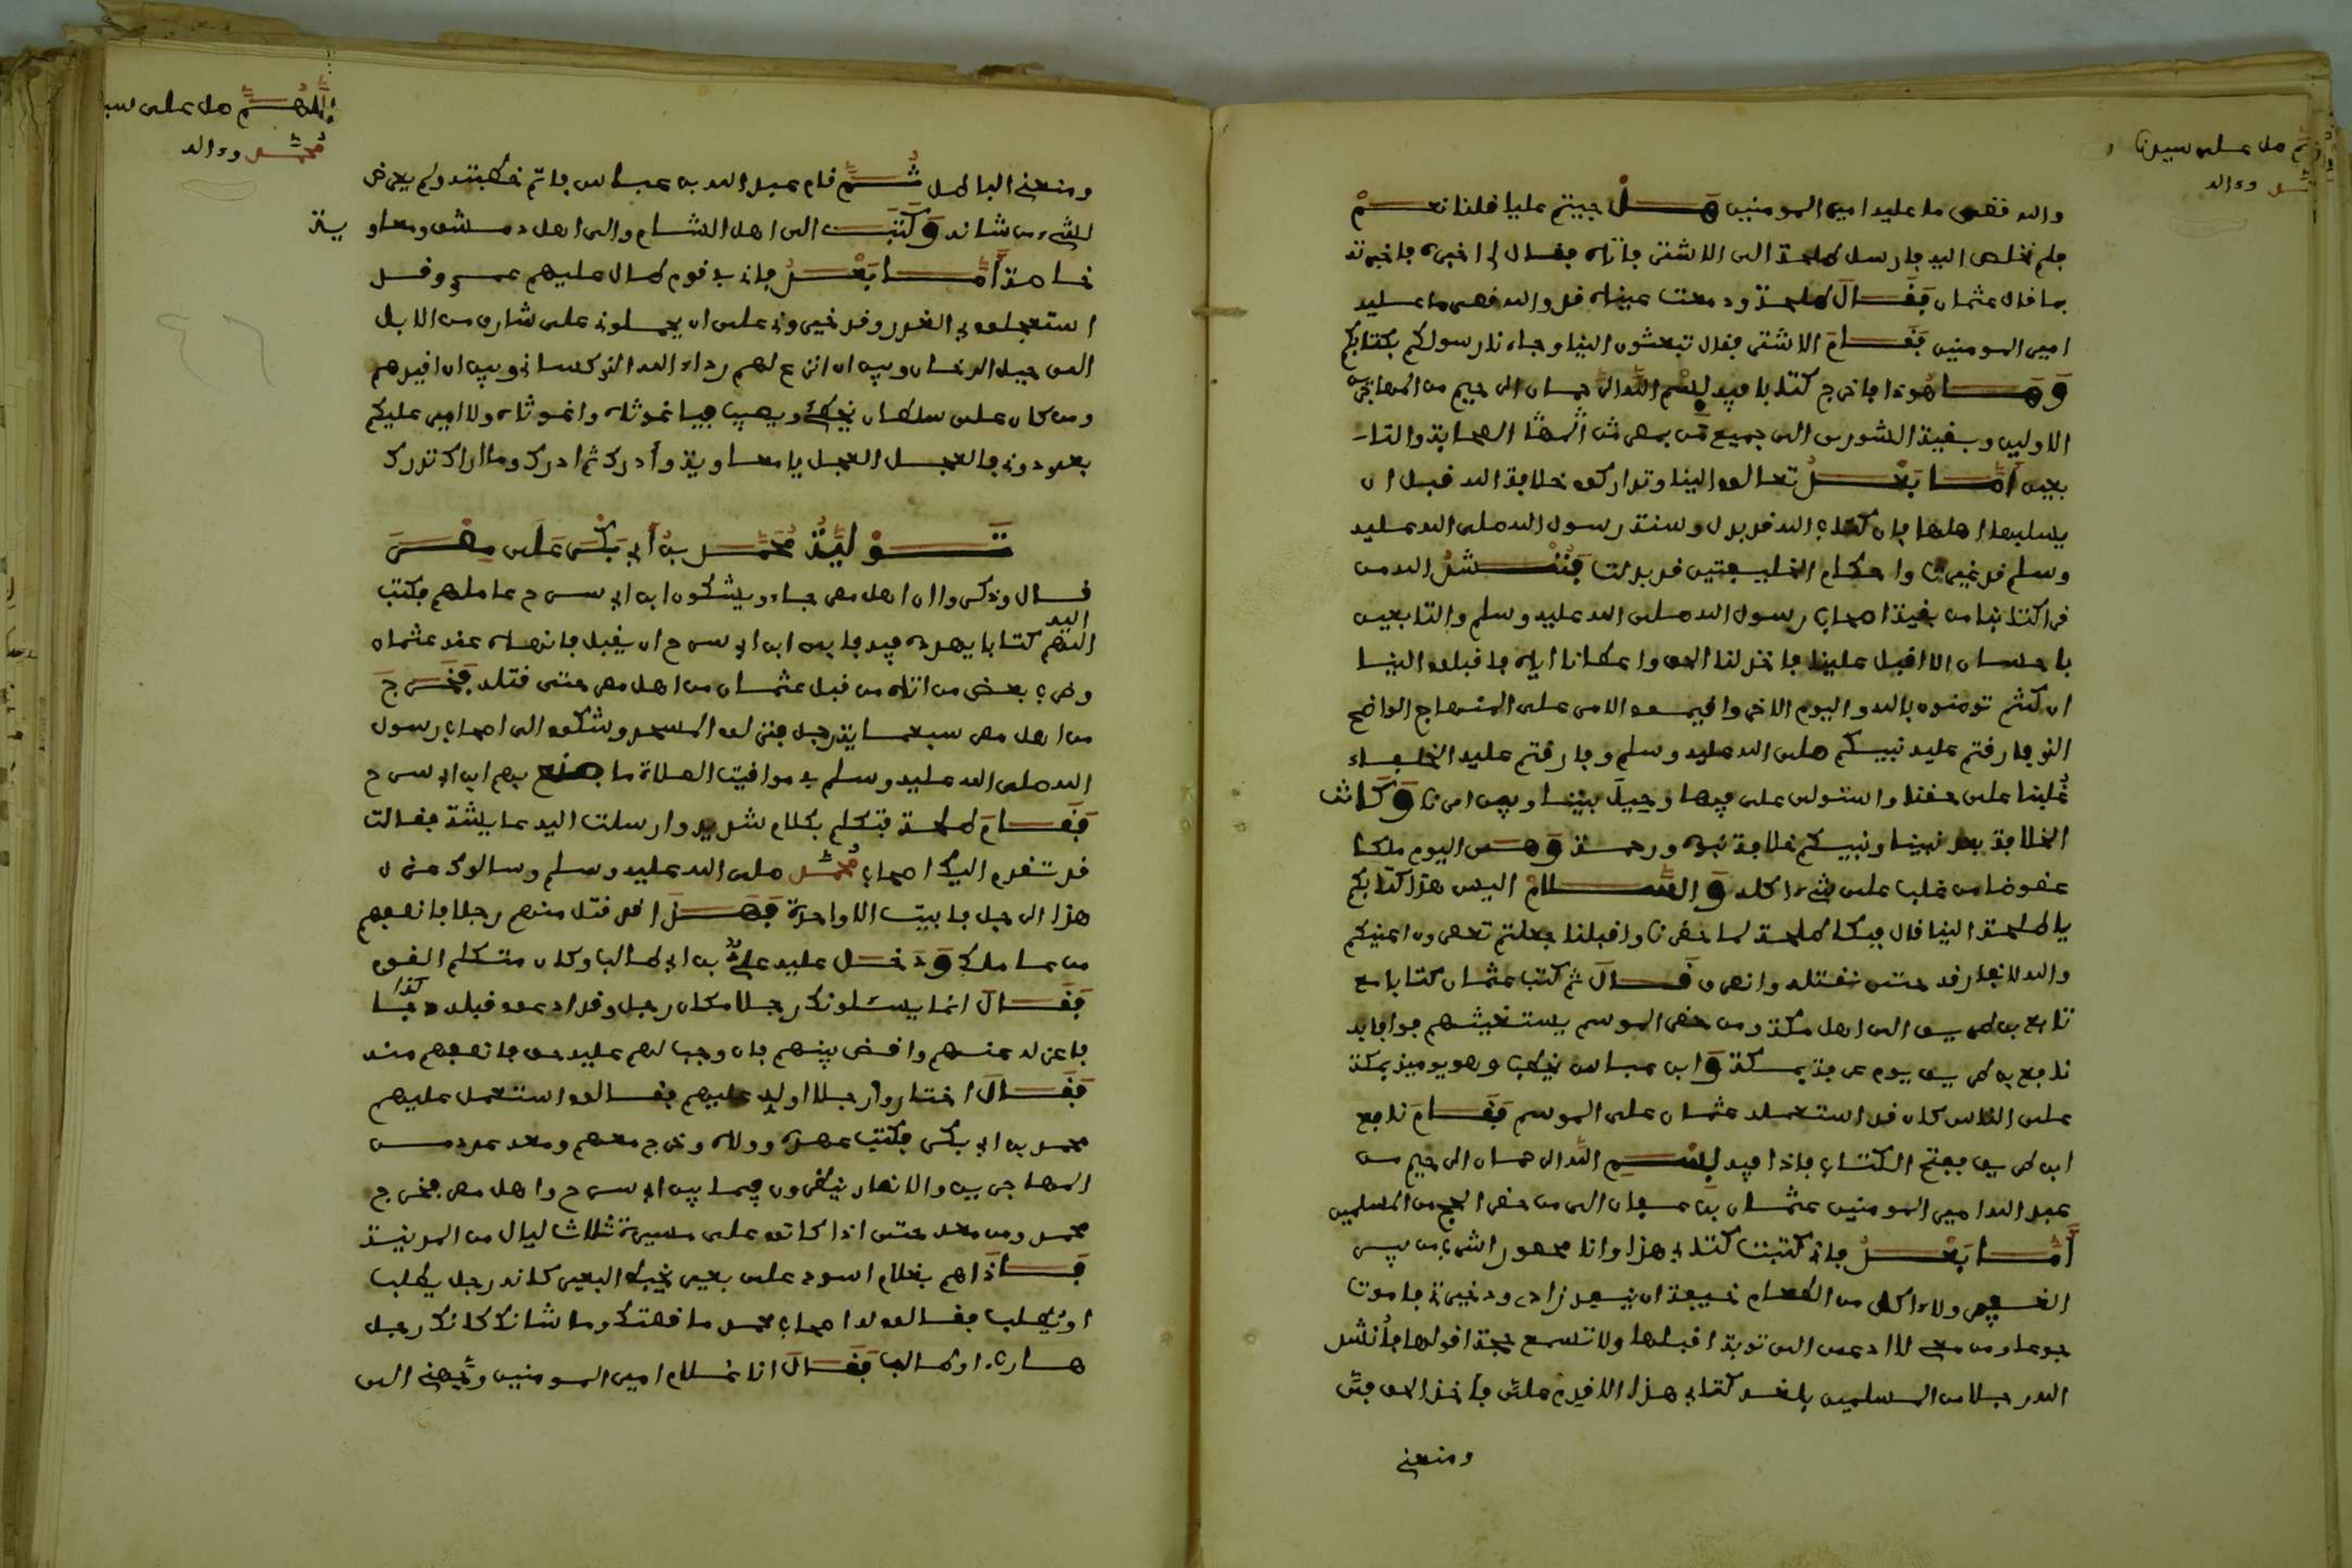 اللهم صل على سيدنا
محمد وءاله
والله فقصى ما عليه امير المومنين هل جيتم عليا فلنا نعم
فلم نخلص اليه فارسل طلحة الى الاشتر فاتاه فقال لي اخبره فاخبرته
بما قال عثمان فقال طلحة ودمعت عيناه قد والله قصى ما عليه
امير المومنين فقام الاشتر فقال تبعثون الينا وجاءنا رسولكم بكتابكم
وها هوذا فاخرج كتابا فيه بسم الله الرحمان الرحيم من المهاجرين
الاولين وبقية الشورى الى جميع من بمصر من الصحابة والتا
بعين أما بعد تعالوا الينا وتداركوا خلافة الله قبل ان
يسلبها اهلها فان كتاب الله قد بدل وسنة رسول الله صلى الله عليه
وسلم قد غيرت واحكام الخليفتين قد بدلت فننشد الله من
قرا كتابنا من بقية اصحاب رسول الله صلى الله عليه وسلم والتابعين
باحسان الا اقبل علينا فاخذ لنا الحق واعطانا اياه فاقبلوا الينا
ان كنتم تومنون بالله واليوم الاخر واقيموا الامر على المنهاج الواضح
الذي فارقتم عليه نبيكم صلى الله عليه وسلم وفارقتم عليه الخلفاء
غلبنا على حقنا واستولى على فيئنا وحيل بيننا وبين امرنا وكانت
الخلافة بعد نبينا ونبيكم خلافة نبوة ورحمة وهي اليوم ملكا
عضوضا من غلب على شيء اكله والسلام اليس هذا كتابكم
يا طلحة الينا قال فبكى طلحة لما حضرنا واقبلنا جعلتم تعصرون اعينكم
والله لا نفارقه حتى نقتله وانصرف قال ثم كتب عثمان كتابا مع
نافع بن طريف الى اهل مكة ومن حضر الموسم يستغيثهم فوافا به
نافع بن طريف يوم عرفة بمكة وابن عباس يخطب وهو يوميذ بمكة
على الناس كان قد استعمله عثمان على الموسم فقام نافع
ابن طريف ففتح الكتاب فاذا فيه بسم الله الرحمان الرحيم من
عبد الله امير المومنين عثمان بن عفان الى من حضر الحج من المسلمين
أما بعد فاني كتبت كتابي هذا وانا محصور اشرب من بير
القصر ولا ءاكل من الطعام خيفة ان ينفد زادي وذخيرتي فاموت
جوعا ومن معي لا ادعى الى توبة اقبلها ولا تسمع حجة اقولها فأنشد
الله رجلا من المسلمين بلغه كتابي هذا الا قدم علي فاخذ الحق في
ومنعني
اللهم صل على سيد
محمد وءاله
ومنعني الباطل ثم قام عبد الله بن عباس فاتم خطبته ولم يعرض
لشيء من شانه وكتب الى اهل الشام والى اهل دمشق ومعاو
ية
خاصة أما بعد فاني في قوم طال عليهم عمري وقد
استعجلوا في القدر وقد خيروني على ان يحملوني على شارف من الابل
الى جبل الدخان وبين ان انزع لهم رداء الله الذي كساني وبين ان اقيدهم
ومن كان على سلطان يخطئ ويصيب فيا غوثاه واغوثاه ولا امير عليكم
بعد دوني فالعجل العجل يا معاوية وأدرك ثم ادرك وما اراك تدرك
تولية محمد بن أبي بكر على مصر
قال وذكروا ان اهل مصر جاءو يشكون ابن ابي سرح عاملهم فكتب
اليه
اليهم كتابا يهدده فيه فابى ابن ابي سرح ان يقبل ما نهاه عنه عثمان
وضرب بعض من اتاه من قبل عثمان من اهل مصر حتى قتله فخرج
من اهل مصر سبعماية رجل فنزلوا المسجد وشكوا الى اصحاب رسول
الله صلى الله عليه وسلم في مواقيت الصلاة ما صنع بهم ابن ابي سرح
فقام طلحة فتكلم بكلام شديد وارسلت اليه عايشة فقالت
قد تقدم اليك اصحاب محمد صلى الله عليه وسلم وسالوك عزل
هذا الرجل فابيت الا واحدة فهذا قد قتل منهم رجلا فانصفهم
من عاملك ودخل عليه علي بن ابي طالب وكان متكلم القوم
كذا
فقال انما يسئلونك رجلا مكان رجل وقد ادعوا قبله دما
فاعزله عنهم واقض بينهم فان وجب لهم عليه حق فانصفهم منه
فقال اختاروا رجلا اوليه عليهم فقالوا استعمل عليهم
محمد بن ابي بكر فكتب عهده وولاه وخرج معهم ومعه عدد من
المهاجرين والانصار ينظرون فيما بين ابي سرح واهل مصر فخرج
محمد ومن معه حتى اذا كانوا على مسيرة ثلاث ليال من المدينة
فاذا هم بغلام اسود على بعير يخبط البعير كانه رجل يطلب
او يطلب فقالوا له اصحاب محمد ما قصتك وما شانك كانك رجل
هارب او طالب فقال انا غلام امير المومنين وجهني الى